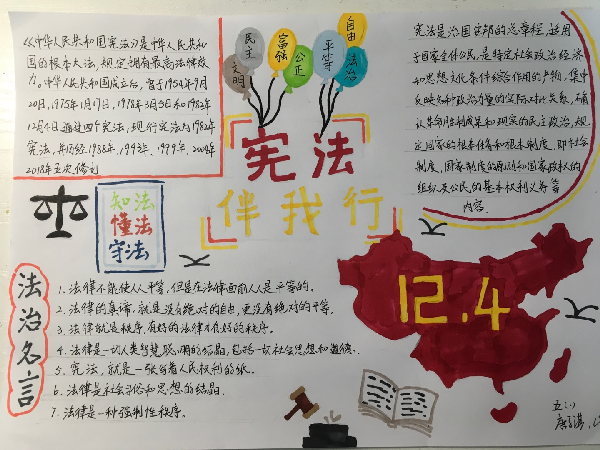 《中华人民共和国宪法》是中华人民共和
国的根本大法，规定拥有最高法律效
力。中华人民共和国成立后，曾于1954年9月
20日，1975年1月17日，1978年3月5日和1982年
12月4日通过四个宪法，现行宪法为1982年
宪法，并历经1988年、1993年、1999年、2004年
2018年五次修订
文明
民主
富强
公正
平等
自由
法治
宪法是治国安邦的总章程，适用
于国家全体公民，是特定社会政治经济
和思想文化条件综合作用的产物，集中
反映各种政治力量的实际对比关系，确
认革命胜利成果和现实的民主政治，规
定国家的根本任务和根本制度，即社会
制度、国家制度的原则和国家政权的
组织以及公民的基本权利义务等
内容
宪法
伴我行
知法
懂法
守法
法治名言
1. 法律不能使人人平等，但是在法律面前人人是平等的。
2. 法律的真谛，就是没有绝对的自由，更没有绝对的平等。
3. 法律就是秩序，有好的法律才有好的秩序。
4. 法律是一切人类智慧聪明的结晶，包括一切社会思想和道德。
5. 宪法，就是一张写着人民权利的纸。
6. 法律是社会习俗和思想的结晶。
7. 法律是一种强制性秩序。
12.4